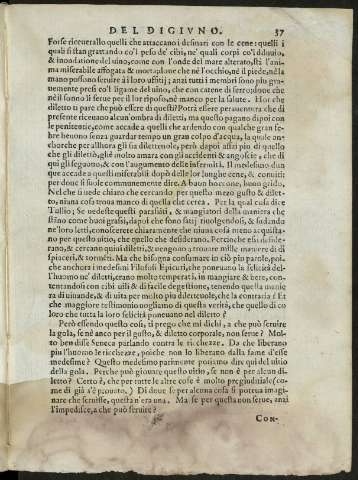 DEL DIGIVNO. 57
Forse riceuerallo quelli che attaccano i desinari con le cene: quelli i
quali si stan grattando co'l peso de' cibi, ne' quali corpi co'l diluuio,
& inondatione del uino, come con l'onde del mare alterato, stà l'ani-
ma miserabile affogata & mortalmente che nè l'occhio, nè il piede, nè la
mano possono seruire à i loro uffitij; anzi tutti i membri sono piu gra-
uemente presi co'l ligame del uino, che con catene di ferro, doue che
nè il sonno li serue per il lor riposo, nè manco per la salute. Hor che
diletto ti pare che può essere di questi? Potrà essere perauentura che di
presente riceuano alcun'ombra di diletti, ma questo pagano dipoi con
le penitentie, come accade a quelli che ardendo con qualche gran fe-
bre beuono senza guardar tempo un gran colpo d'acqua, la quale an-
chorche per allhora gli sia dilettenole, però dapoi assai piu di quello
che gli dilettò, gliè molto amara con gli accidenti & angoscie, che di
qui gli seguono, & con l'augumento delle infermità. Il medesimo dun
que accade a questi miserabili dopò delle lor lunghe cene, & conuiti;
per doue si suole communemente dire, A buon boccone, buon grido.
Nel che si uede chiaro che cercando per questo mezo gusto & dilet-
to, niuna cosa trouano manco di quella che cercano. Per la qual cosa dice
Tullio; Se uedeste questi parasiti, & mangiatori della maniera che
stanno come buoi grassi, dapoi che sono satij riuolgendosi, & sudando
ne' loro letti, conoscerete chiaramente che niuna cosa meno acquista-
no per questo uitio, che quello che desiderano. Perciochè essi deside-
rano, & cercano quiui diletti, & uengono a trouare mille maniere di di
spiaceri, & tormẽti. Ma che bisogna consumare in ciò piu parole, poi
che anchora i medesimi Filosofi Epicuri, che poneuano la felicità del-
l'huomo ne' diletti, erano molto temperati, in mangiare & bere, con-
tentandosi con cibi uili & di facile degestione, tenendo questa manie
ra di uiuande, & di uita per molto piu diletteuole, che la contraria? Et
che maggiore testimonio uogliamo di questa uerità, che quello di co
loro che tutta la loro felicità poneuano nel diletto?
Però essendo questo così, ti prego che mi dichi, a che può seruire
la gola, se nè anco per il gusto, & diletto corporale, non serue? Mol-
to ben disse Seneca parlando contra le ricchezze. Da che liberano
piu l'huomo le ricchezze, poiche non lo liberano dalla fame d'esse
medesime? Questo medesimo parimente potiamo dire qui del uitio
della gola. Perche può giouare questo uitio, se non è per alcun di-
letto? Certo è, che per tutte le altre cose è molto pregiudiciale (co-
me di già s'è prouato.) Di doue se per alcuna cosa si poteua imagi-
nare che seruisse, questa n'era una. Ma se per questa non serue, anzi
l'impedisce, a che può seruire?
CON-